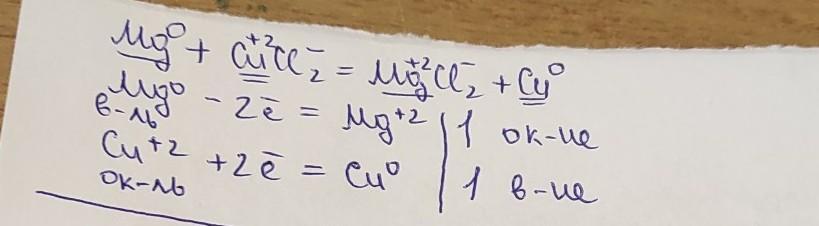 Mg⁰ + Cu⁺²Cl₂⁻ = Mg⁺²Cl₂⁻ + Cu⁰
Mg⁰ - 2ē = Mg⁺² | 1 ок-ие
в-ль
Cu⁺² + 2ē = Cu⁰ | 1 в-ие
ок-ль